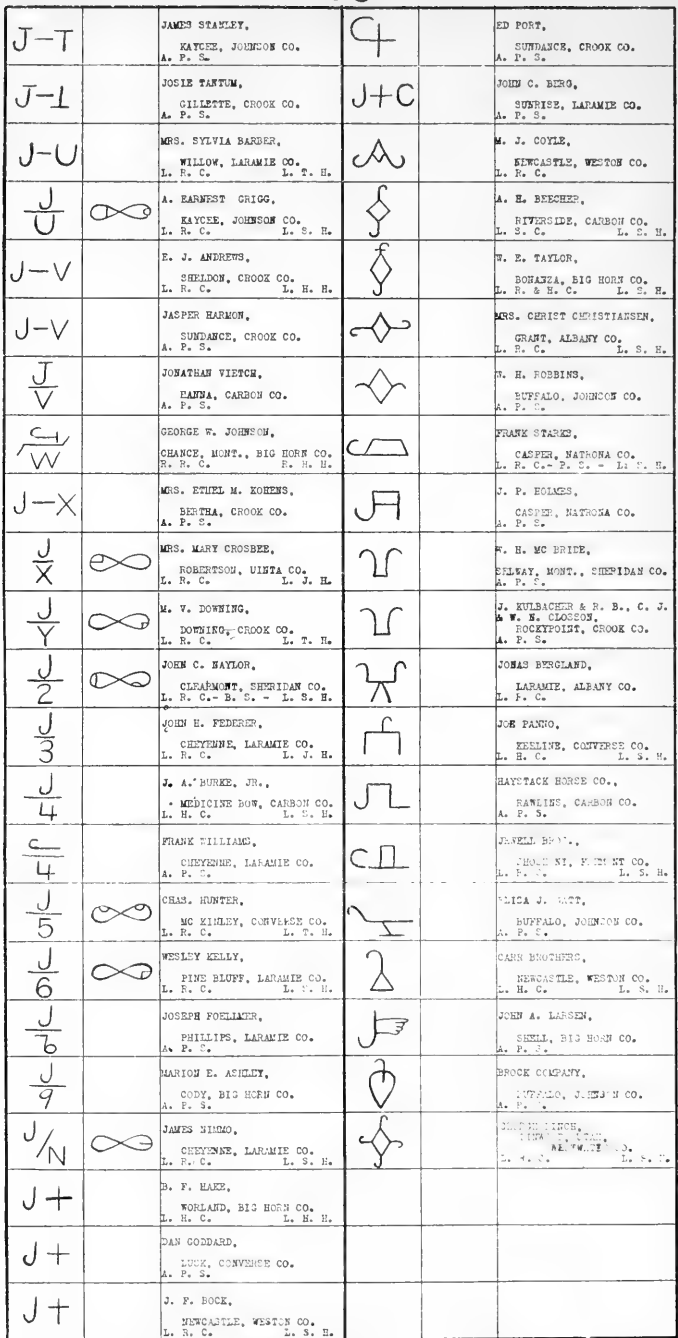 J-T
JAMES STANLEY,
KAYCEE, JOHNSON CO.
A. P. S.
J-1
JOSIE TANTUM,
GILLETTE, CROOK CO.
A. P. S.
J-U
MRS. SYLVIA BARBER,
WILLOW, LARAMIE CO.
L. R. C. L. T. H.
J
U
A. EARNEST GRIGG,
KAYCEE, JOHNSON CO.
L. R. C. L. S. H.
J-V
E. J. ANDREWS,
SHELDON, CROOK CO.
L. R. C. L. H. H.
J-V
JASPER HARMON,
SUNDANCE, CROOK CO.
A. P. S.
J
V
JONATHAN VIETCH,
HANNA, CARBON CO.
A. P. S.
W
GEORGE W. JOHNSON,
CHANCE, MONT., BIG HORN CO.
R. R. C. R. H. H.
J-X
MRS. ETHEL M. KOHENS,
BERTHA, CROOK CO.
A. P. S.
J
X
MRS. MARY CROSBEE,
ROBERTSON, UINTA CO.
L. R. C. L. J. H.
J
Y
M. V. DOWNING,
DOWNING, CROOK CO.
L. R. C. L. T. H.
J
2
JOHN C. NAYLOR,
CLEARMONT, SHERIDAN CO.
L. R. C.- B. S. - L. S. H.
J
3
JOHN H. FEDERER,
CHEYENNE, LARAMIE CO.
L. R. C. L. J. H.
J
4
J. A. BURKE, JR.,
MEDICINE BOW, CARBON CO.
L. H. C. L. S. H.
4
FRANK WILLIAMS,
CHEYENNE, LARAMIE CO.
A. P. S.
J
5
CHAS. HUNTER,
MC KINLEY, CONVERSE CO.
L. R. C. L. T. H.
J
6
WESLEY KELLY,
PINE BLUFF, LARAMIE CO.
L. R. C. L. S. H.
J
JOSEPH FOELLMER,
PHILLIPS, LARAMIE CO.
A. P. S.
J
9
MARION E. ASHLEY,
CODY, BIG HORN CO.
A. P. S.
J/N
JAMES NIMMO,
CHEYENNE, LARAMIE CO.
L. R. C. L. S. H.
J+
B. F. HAKE,
WORLAND, BIG HORN CO.
L. H. C. L. H. H.
J+
DAN GODDARD,
LUSK, CONVERSE CO.
A. P. S.
J+
J. F. BOCK,
NEWCASTLE, WESTON CO.
L. R. C. L. S. H.
ED PORT,
SUNDANCE, CROOK CO.
A. P. S.
J+C
JOHN C. BERG,
SUNRISE, LARAMIE CO.
A. P. S.
M. J. COYLE,
NEWCASTLE, WESTON CO.
L. R. C.
A. H. BEECHER,
RIVERSIDE, CARBON CO.
L. S. C. L. S. H.
W. E. TAYLOR,
BONANZA, BIG HORN CO.
L. R. & H. C. L. S. H.
MRS. CHRIST CHRISTIANSEN,
GRANT, ALBANY CO.
L. R. C. L. S. H.
W. H. ROBBINS,
BUFFALO, JOHNSON CO.
A. P. S.
FRANK STARKS,
CASPER, NATRONA CO.
L. R. C.- P. S. - L. S. H.
J. P. HOLMES,
CASPER, NATRONA CO.
A. P. S.
W. H. MC BRIDE,
SELWAY, MONT., SHERIDAN CO.
A. P. S.
J. KULBACHER & R. B., C. J.
& W. N. CLOSSON,
ROCKYPOINT, CROOK CO.
A. P. S.
JONAS BERGLAND,
LARAMIE, ALBANY CO.
L. R. C.
JOE PANNO,
KEELINE, CONVERSE CO.
L. H. C. L. S. H.
HAYSTACK HORSE CO.,
RAWLINS, CARBON CO.
A. P. S.
JEWELL
CO.
L. S. H.
BUFFALO, JOHNSON CO.
A. P. S.
CARR BROTHERS,
NEWCASTLE, WESTON CO.
L. H. C. L. S. H.
JOHN A. LARSEN,
SHELL, BIG HORN CO.
A. P. S.
BROCK COMPANY,
BUFFALO, JOHNSON CO.
A. P.
L. S. H.